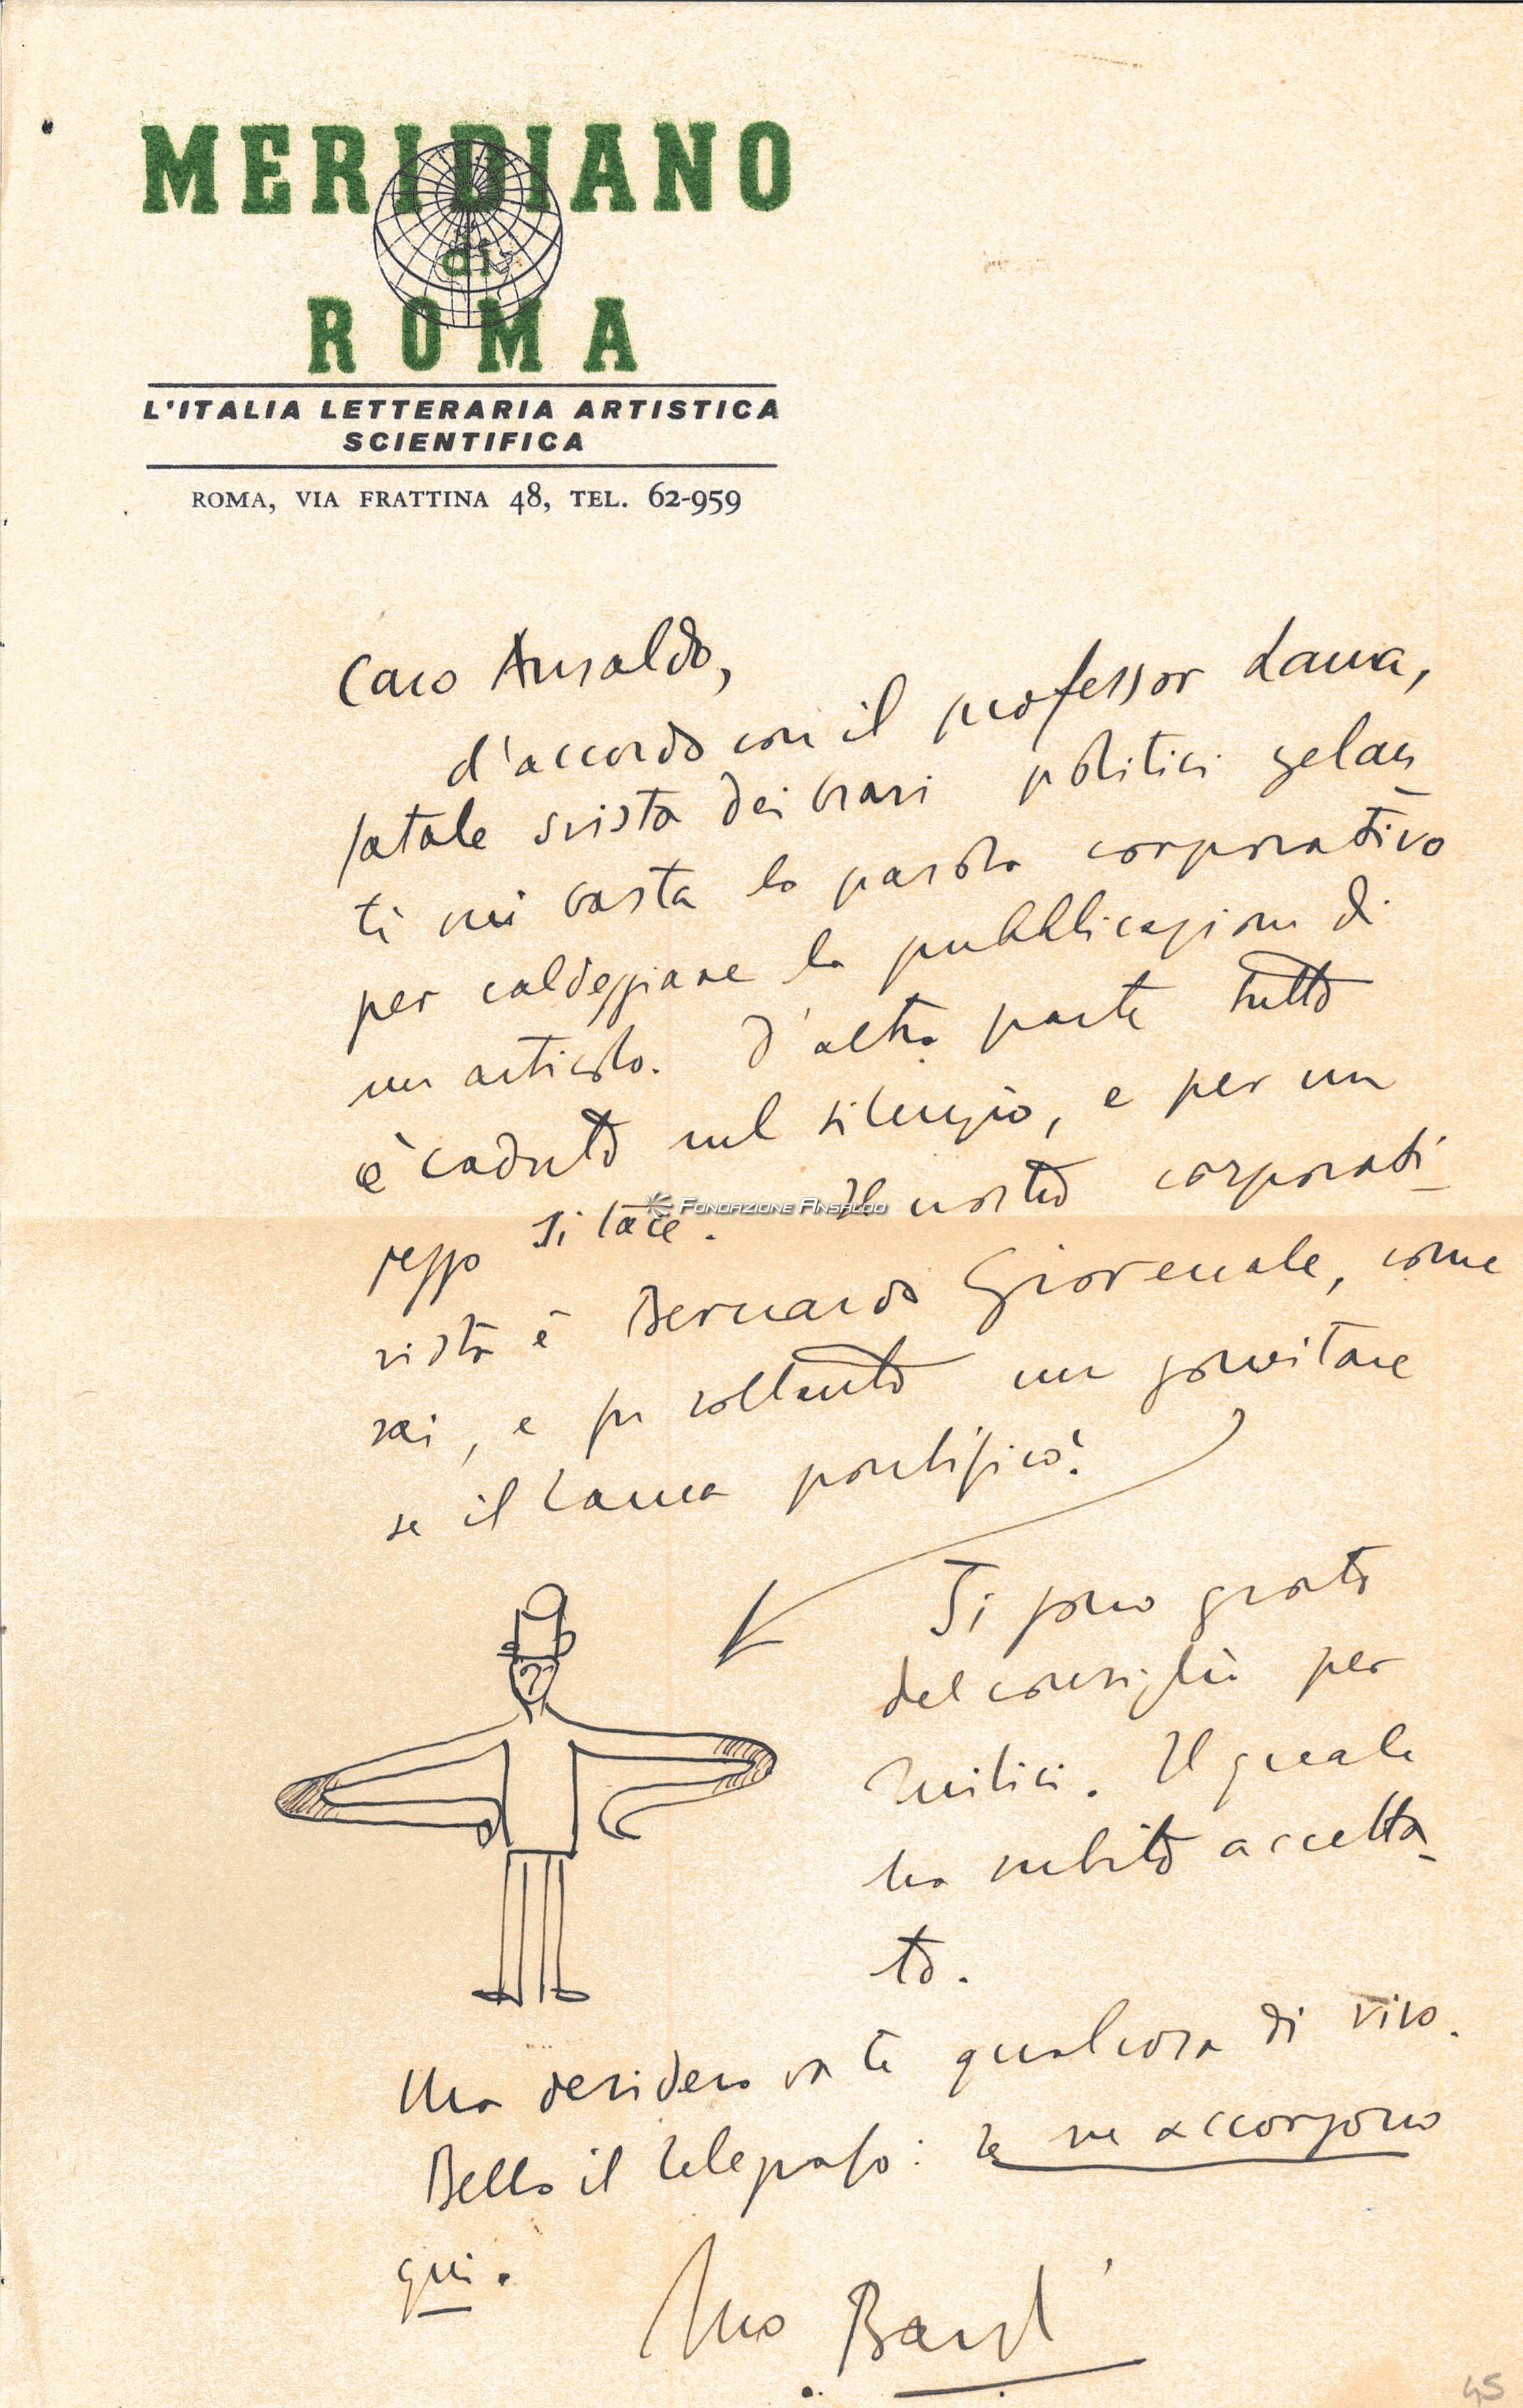 MERIDIANO
di
ROMA
L'ITALIA LETTERARIA ARTISTICA
SCIENTIFICA
ROMA, VIA FRATTINA 48, TEL. 62-959
Caro Ansaldo,
d'accordo con il professor Lama,
fatale svista dei bravi politici zelan
ti mi basta la parola corporativo
per caldeggiare la pubblicazione di
un articolo. D'altra parte tutto
è caduto nel silenzio, e per un
pezzo si tace. Il nostro corporati-
vista è Bernardo Giovenale, come
sai, e fu soltanto un gomitare
se il Lama pontificò!
FONDAZIONE ANSALDO
Ti sono grato
del consiglio per
Milici. Il quale
ha subito accetta-
to.
Ma desidero da te qualcosa di vivo.
Bello il Telegrafo: se ne accorgono
qui.
Tuo Bardi
45